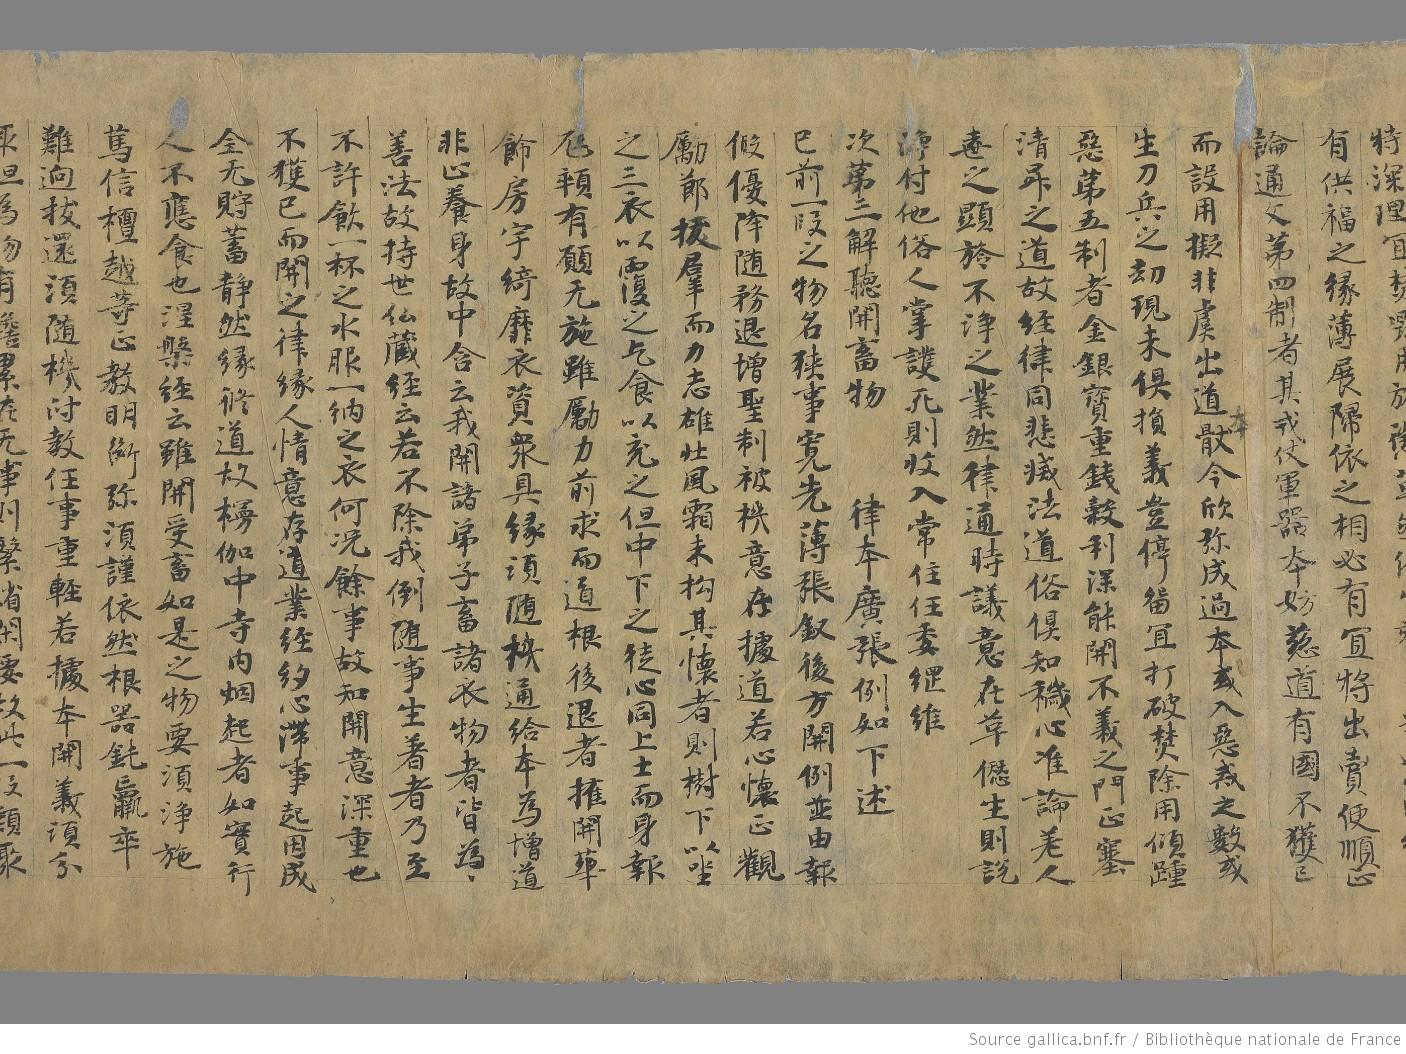 特深理宜焚
有供福之緣薄展歸依之相必有宜將出賣便順正
論通文第四制者其戎仗軍器本妨慈道有國不獲已
而設用擬非虞出道猒今欣弥成過本或入惡戒之數或
生刀兵之劫現未俱損義豈停留宜打破焚除用傾踵
惡苐五制者金銀寶重錢穀利深能開不義之門正塞
清昇之道故經律同悲瘢法道俗俱知穢心准論羌人
毒之顯於不淨之業然律通時議意在草傃生則說
淨付他俗人掌護死則收入常住任委綱維
次苐三解聽開畜物 律本廣張例如下述
已前一段之物名狹事寬先薄張釵後方開例並由報
假優降随務退增聖制被機意在攄道若心懷正觀
勵節拔羣而力志雄壯風霜未拘其懷者則樹下以坐
之三衣以覆之乞食以充之但中下之徒心同上士而身報
尫頼有願无施雖勵力前求而道根後退者摧開華
餙房宇綺靡衣資衆具緣須随機通給本為增道
非止養身故中含云我開諸弟子畜諸衣物者皆為
善法故持世仏藏經云若不除我倒随事生著者乃至
不許飲一杯之水服一納之衣何况餘事故知開意深重也
不獲已而開之律緣人情意存道業經約心滯事起因成
全无貯蓄靜然緣修道故楞伽中寺内烟起者如實行
人不應食也涅槃經云雖開受畜如是之物要須淨施
篤信檀越等正教明斷弥須謹依然根器鈍羸卒
難逈拔還須随機付教任事重輕若攄本開義須分